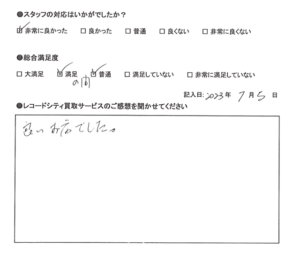 ●スタッフの対応はいかがでしたか？
☑非常に良かった □良かった □普通 □良くない □非常に良くない
●総合満足度
□大満足 ☑満足 ☑普通 □満足していない □非常に満足していない
の間
記入日: 2023年 7月 5日
●レコードシティ買取サービスのご感想を聞かせてください
良いお店でした。